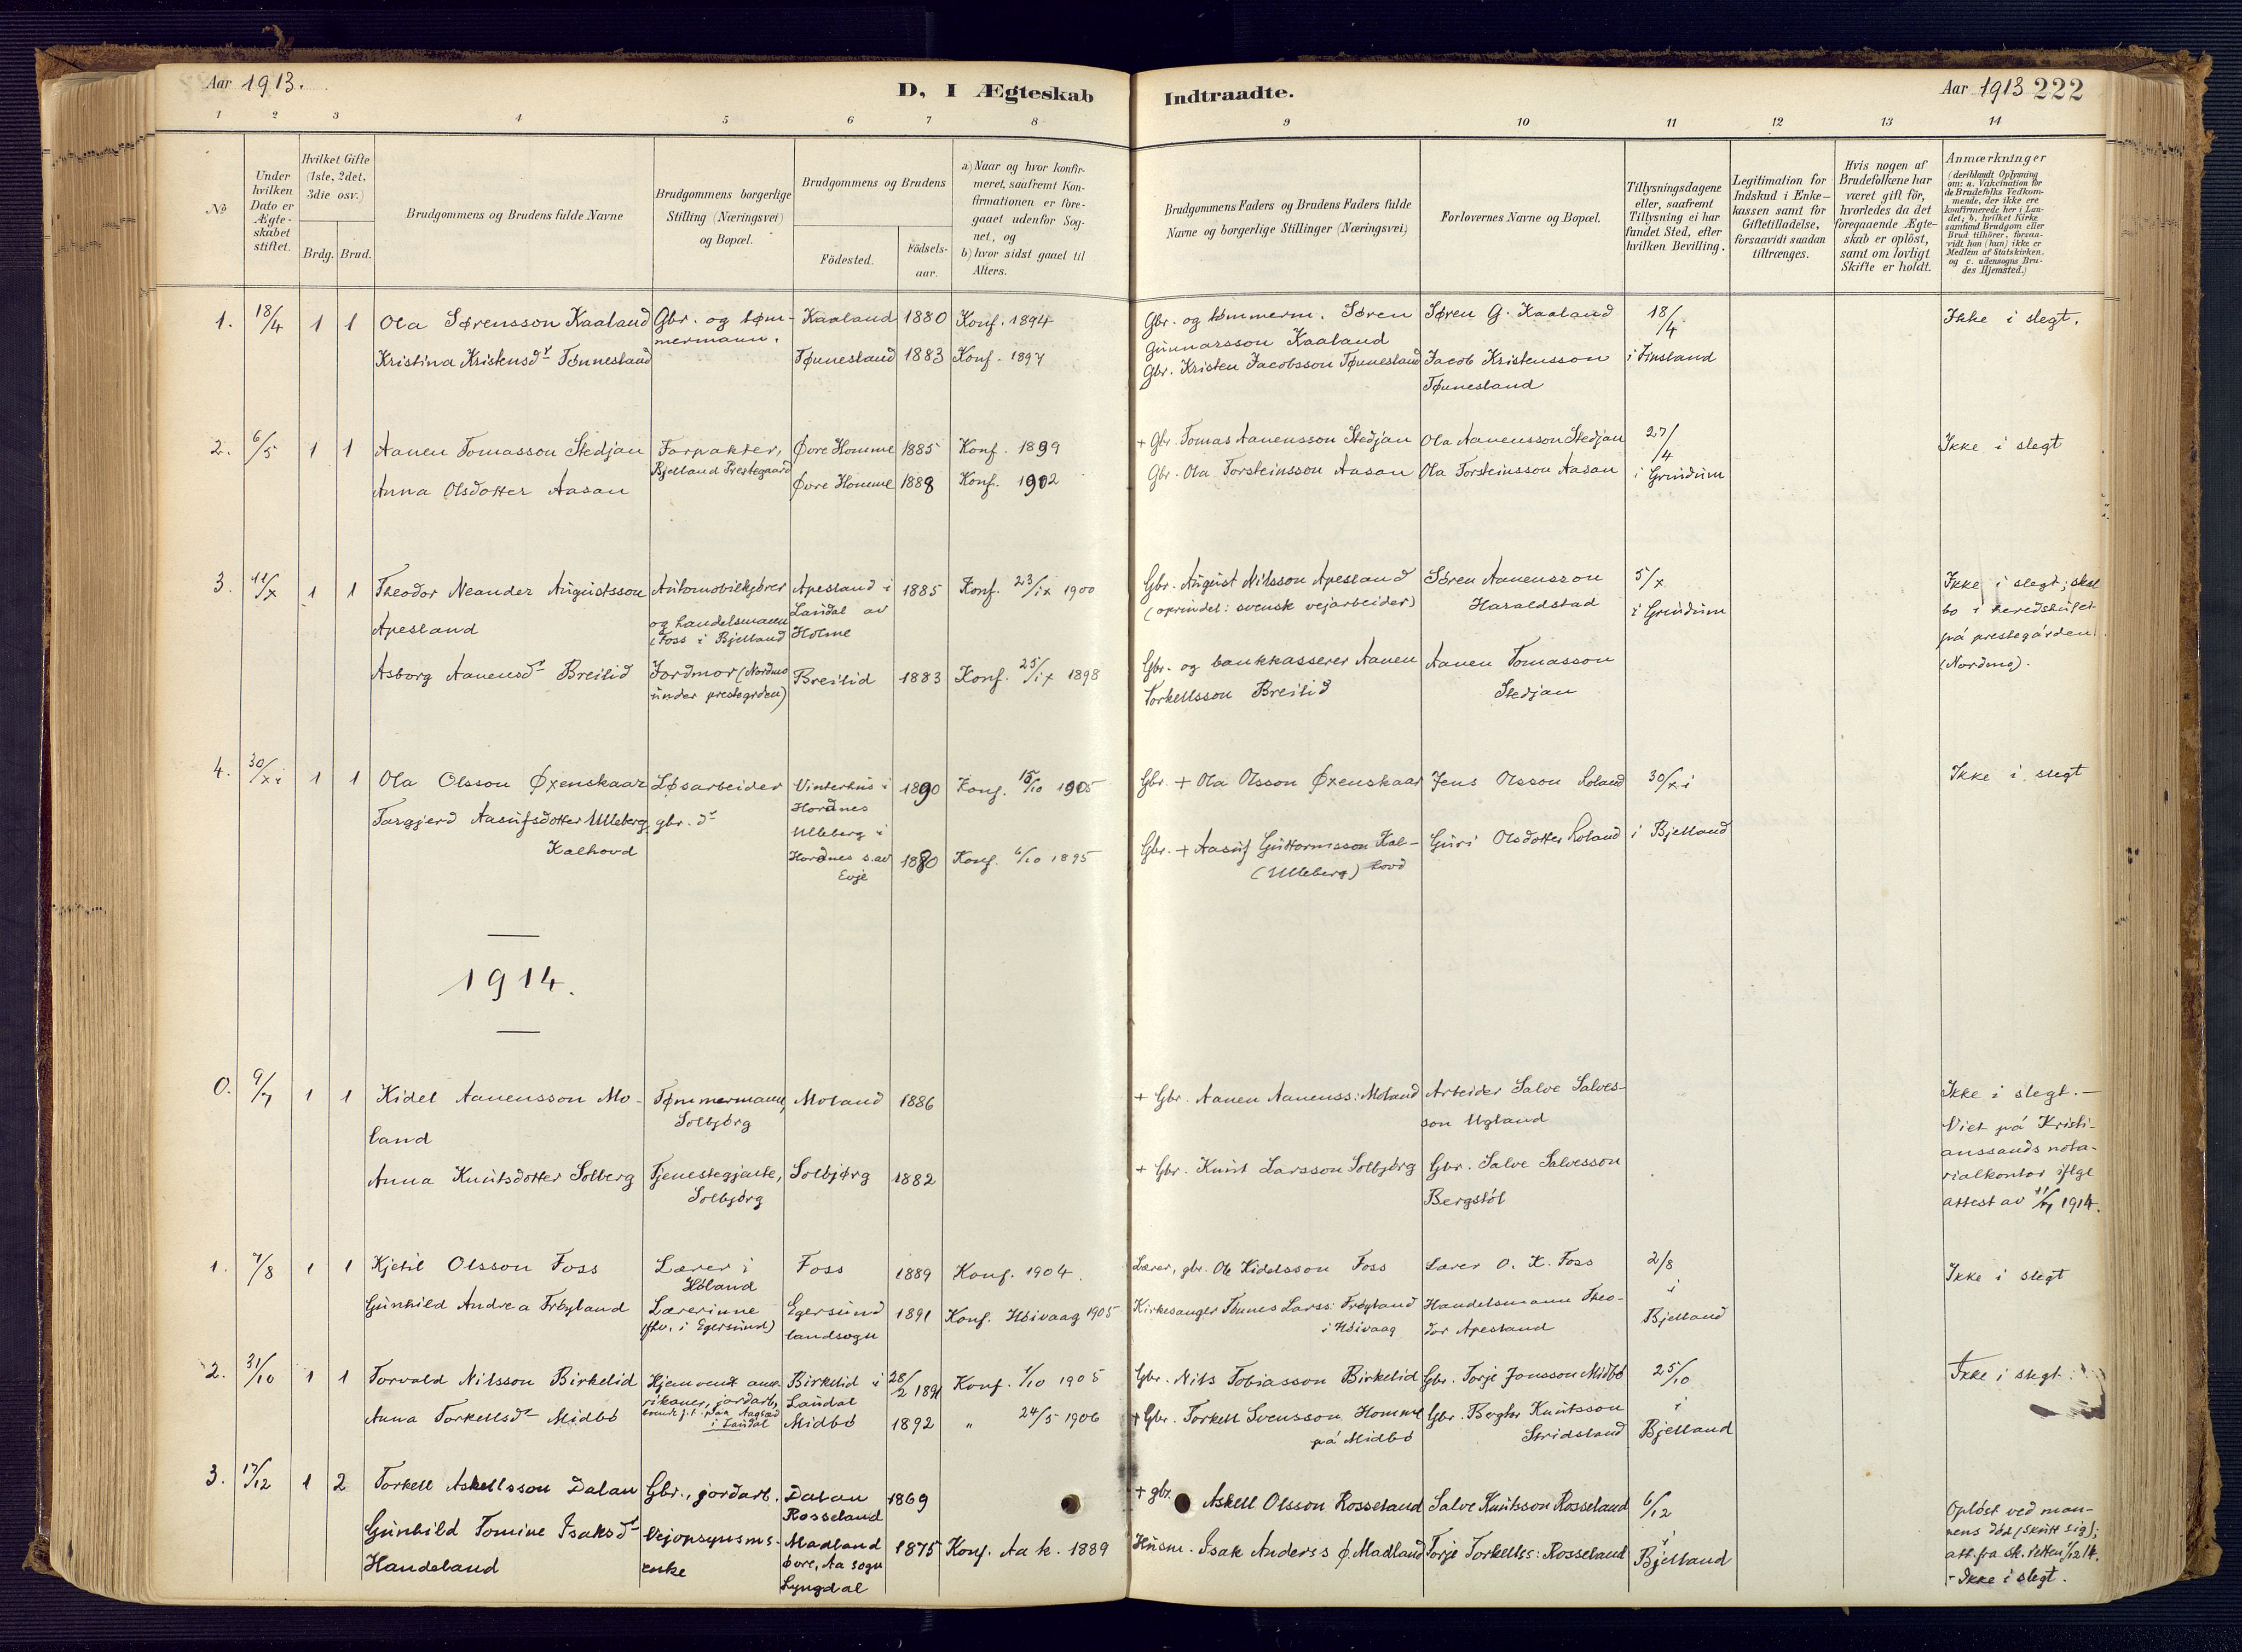 Aar 1913.
D, I Ægteskab
Indtraadte.
Aar 1913 222
1 2 3 4 5 6 7 8 9 10 11 12 13 14
№
Under hvilken Dato er Ægte-skabet stiftet.
Hvilket Gifte (1ste, 2det, 3die osv.)
Brdg. Brud.
Brudgommens og Brudens fulde Navne
Brudgommens borgerlige Stilling (Næringsvei) og Bopæl.
Brudgommens og Brudens
Födested.
Födsels-aar.
a) Naar og hvor konfir-meret, saafremt Kon-firmationen er fore-gaaet udenfor Sog-net, og
b) hvor sidst gaaet til Alters.
Brudgommens Faders og Brudens Faders fulde Navne og borgerlige Stillinger (Næringsvei)
Forlovernes Navne og Bopæl.
Tillysningsdagene eller, saafremt Tillysning ei har fundet Sted, efter hvilken Bevilling.
Legitimation for Indskud i Enke-kassen samt for Giftetilladelse, forsaavidt saadan tiltrænges.
Hvis nogen af Brudefolkene har været gift för, hvorledes da det foregaaende Ægte-skab er oplöst, samt om lovligt Skifte er holdt.
Anmærkninger (deriblandt Oplysning om: a. Vakcination for de Brudefolks Vedkom-mende, der ikke ere konfirmerede her i Lan-det; b, hvilket Kirke samfund Brudgom eller Brud tilhörer, forsaa-vidt han (hun) ikke er Medlem af Statskirken. og c. udensogns Bru-des Hjemsted.)
1. 18/4 1 1 Ola Sørensson Kaaland Gbr. og tøm-mermann. Kaaland 1880 Konf. 1894 Gbr. og tømmerm. Søren Gunnarsson Kaaland Søren G. Kaaland 18/4 Ikke i slegt.
Kristina Kristensdr Tønnesland Tønnesland 1883 Konf. 1897 Gbr. Kristen Jacobsson Tønnesland Jacob Kristensson Tønnesland i Finsland
2. 6/5 1 1 Aanen Tomasson Stedjan Forpakter, Bjelland Prestegaard Øvre Homme 1885 Konf. 1899 + Gbr. Tomas Aanensson Stedjan Ola Aanensson Stedjan 27/4 Ikke i slegt
Anna Olsdotter Aasan Øvre Homme 1888 Konf. 1902 Gbr. Ola Torsteinsson Aasan Ola Torsteinsson Aasan i Grindum
3. 11/X 1 1 Theodor Neander Augustsson Apesland Automobilkjører og handelsmann i Foss i Bjelland Apesland i Laudal av Holme 1885 Konf. 23/ix 1900 Gbr. August Nilsson Apesland (oprindel: svensk vejarbeider) Søren Aanensson Haraldstad 5/X i Grindum Ikke i slegt; skal bo i heredshuset på prestegården (Nordmo).
Asborg Aanensdr Breilid Jordmor (Nordmo under prestegrden) Breilid 1883 Konf. 25/ix 1898 Gbr. og bankkasserer Aanen Torkellsson Breilid Aanen Tomasson Stedjan
4. 30/xi 1 1 Ola Olsson Øxenskaar Løsarbeider Vinterhus i Hordnes 1890 Konf. 15/10 1905 Gbr. + Ola Olsson Øxenskaar Jens Olsson Roland 30/xi Ikke i slegt
Targjerd Aasufsdotter Ulleberg Kalhovd gbr. dr Ulleberg i Hordnes s. av Evje 1880 Konf. 6/10 1895 Gbr. + Aasuf Guttormsson Kal-hovd (Ulleberg) Guri Olsdotter Roland i Bjelland
1914.
0. 9/7 1 1 Kidel Aanensson Mo-land Tømmermann, Solbjørg Moland 1886 + Gbr. Aanen Aanenss: Moland Arbeider Salve Salves-son Ugland Ikke i slegt. — Viet på Kristi-anssands nota-rialkontor iflge attest av 11/7 1914.
Anna Knutsdotter Solberg Tjenestegjente, Solbjørg Solbjørg 1882 + Gbr. Knut Larsson Solbjørg Gbr. Salve Salvesson Bergstøl
1. 7/8 1 1 Kjetil Olsson Foss Lærer i Høland Foss 1889 Konf. 1904. Lærer, gbr. Ole Kidelsson Foss Lærer O. K. Foss 2/8 Ikke i slegt
Gunhild Andrea Frøyland Lærerinne (fhv. i Egersund) Egersund landsogn 1891 Konf. Høivaag 1905 Kirkesanger Tønnes Larss: Frøyland i Høivaag Handelsmann Theo-dor Apesland i Bjelland
2. 31/10 1 1 Torvald Nilsson Birkelid Hjemvendt ame-rikaner, jordarb. i Laudal Birkelid i Laudal 28/2 1891 Konf. 1/10 1905 Gbr. Nils Tobiasson Birkelid Gbr. Torje Jonsson Midbø 25/10 Ikke i slegt
Anna Torkellsdr Midbø Midbø 1892 " 24/5 1906 + Gbr. Torkell Svensson Homme på Midbø Gbr. Berghr Knutsson Stridsland i Bjelland
3. 17/12 1 2 Torkell Askellsson Dalan Gbr., jordarb. Dalan Rosseland 1869 + gbr. Askell Olsson Rosseland Salve Knutsson Rosseland 6/12 Opløst ved man-nens død (skutt sig); att. fra sk. retten 1/12 14. - Ikke i slegt.
Gunhild Tomine Isaksdr Handeland Vejopsynsms-enke Madland øvre, Aa sogn Lyngdal 1875 Konf. Aa k. 1889 Husm. Isak Anderss ø. Madland Torje Torkellss: Rosseland i Bjelland